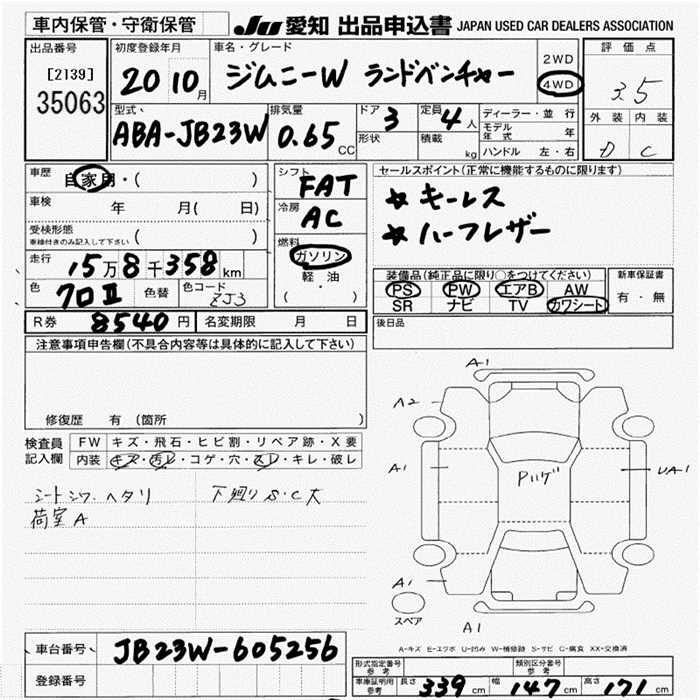 車内保管・守衛保管
JU 愛知 出品申込書 JAPAN USED CAR DEALERS ASSOCIATION
出品番号
[2139]
35063
初度登録年月
20 10月
車名・グレード
ジムニーW ランドベンチャー
2WD
4WD
評価点
3.5
外装 内装
D C
型式、
ABA-JB23W
排気量
0.65 CC
ドア 3
形状
定員 4人
積載 kg
ディーラー・並行
モデル年式 年
ハンドル 左・右
車歴
自家用・( )
車検 年 月( 日)
受検形態
車検付きのみ記入して下さい ( )
走行
15万8千358km
色
クロⅡ
色替
色コード
ZJ3
シフト
FAT
冷房
AC
燃料
ガソリン
軽・油
( )
セールスポイント(正常に機能するものに限ります)
☆ キーレス
☆ ハーフレザー
装備品(純正品に限り○をつけてください)
PS PW エアB AW
SR ナビ TV カワシート
新車保証書
有・無
R券 8540円 名変期限 月 日
後日品
注意事項申告欄(不具合内容等は具体的に記入して下さい)
修復歴 有 (箇所 )
検査員記入欄
FW キズ・飛石・ヒビ割・リペア跡・X要
内装 キズ・汚レ・コゲ・穴・スレ・キレ・破レ
シートシワ・ヘタリ 下廻りS・C大
荷室A
A1
A2
A1
Pハゲ
UA1
A1
スペア
A1
A-キズ E-エクボ U-凹み W-補修跡 S-サビ C-腐食 XX-交換済
車台番号、 JB23W-605256
登録番号
形式指定番号 参考
類別区分番号 参考
車庫証明用 参考 長さ 339cm 幅 147cm 高さ 171cm